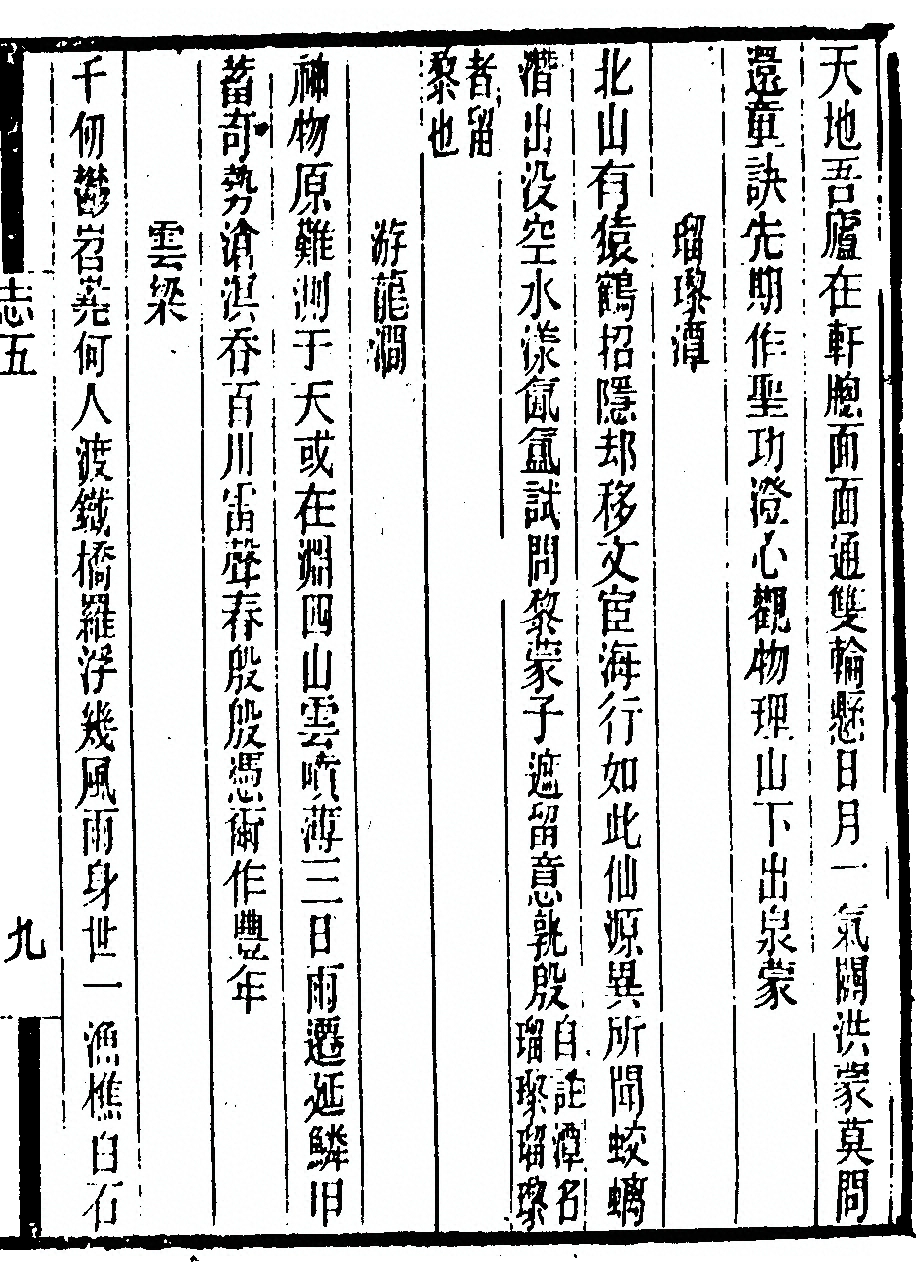 天地吾廬在軒牕面面通雙輪懸日月一氣闢洪蒙莫問
還童訣先期作聖功澄心觀物理山下出泉蒙
瑠瓈潭
北山有猿鶴招隱却移文宦海行如此仙源異所聞蛟螭
潛出没空水漾氤氳試問黎蒙子遮留意孰殷自註潭名
瑠瓈瑠瓈
者留
黎也
游龍澗
神物原難測于天或在淵四山雲噴薄三日雨遷延鱗甲
蓄奇勢滄溟吞百川雷聲春殷殷憑爾作豐年
雲梁
千仞鬱岧嶤何人渡鐵橋羅浮幾風雨身世一漁樵白石
志五
九